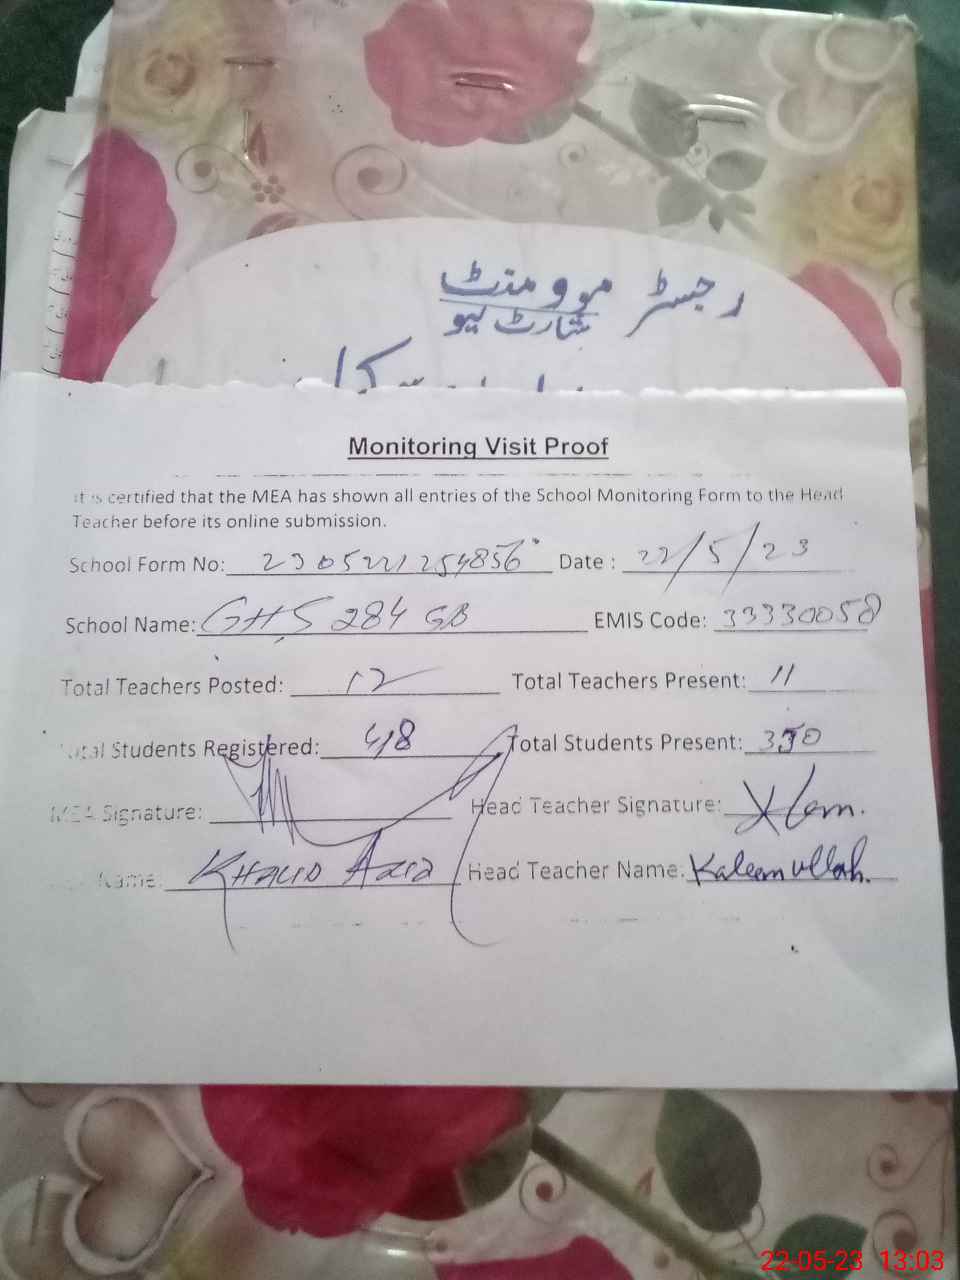 رجسٹر موومنٹ
شارٹ لیو
Monitoring Visit Proof
It is certified that the MEA has shown all entries of the School Monitoring Form to the Head
Teacher before its online submission.
School Form No: 2305221254856 Date : 22/5/23
School Name: GHS 284 GB EMIS Code: 33330058
Total Teachers Posted: 12 Total Teachers Present: 11
Total Students Registered: 418 Total Students Present: 330
MEA Signature: Head Teacher Signature: Klem.
Name: KHALID AZIZ Head Teacher Name: Kaleem ullah.
22-05-23 13:03